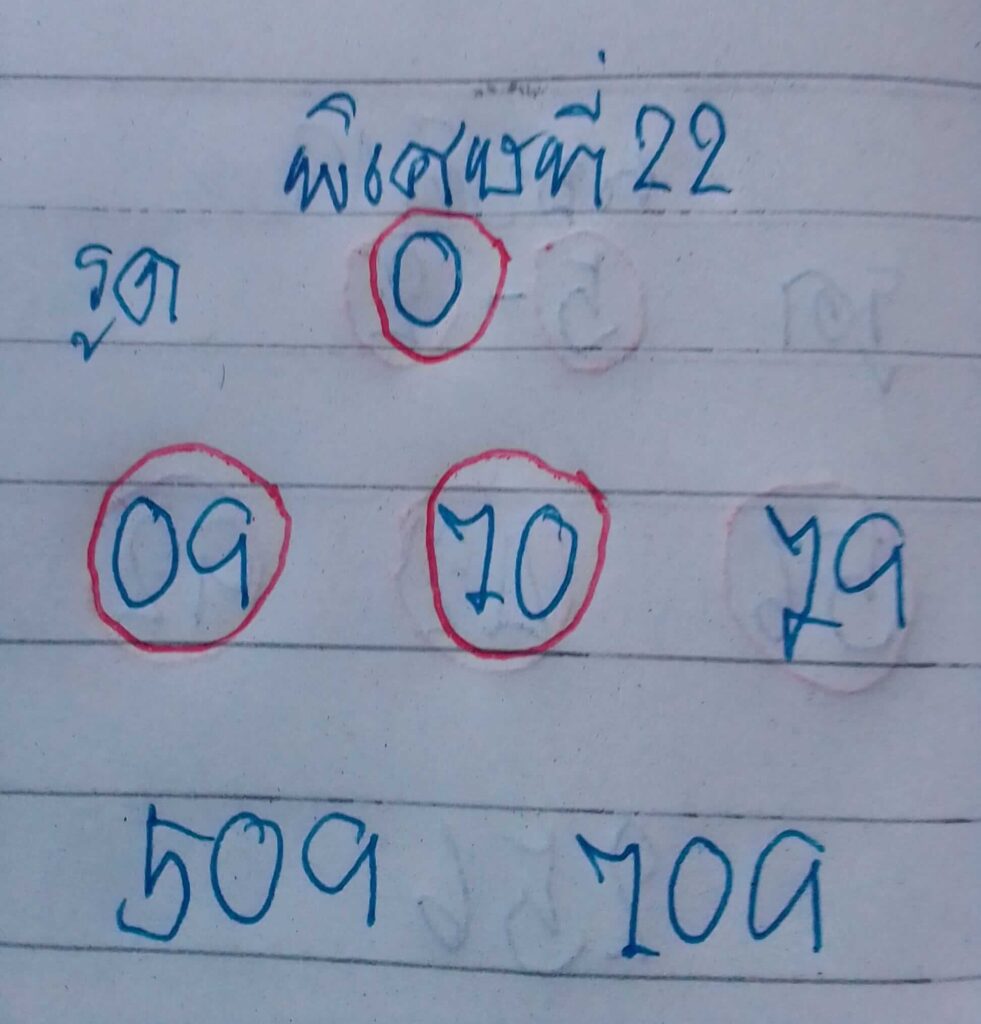 พิเศษที่ 22
รูด 0
09 10 19
509 109